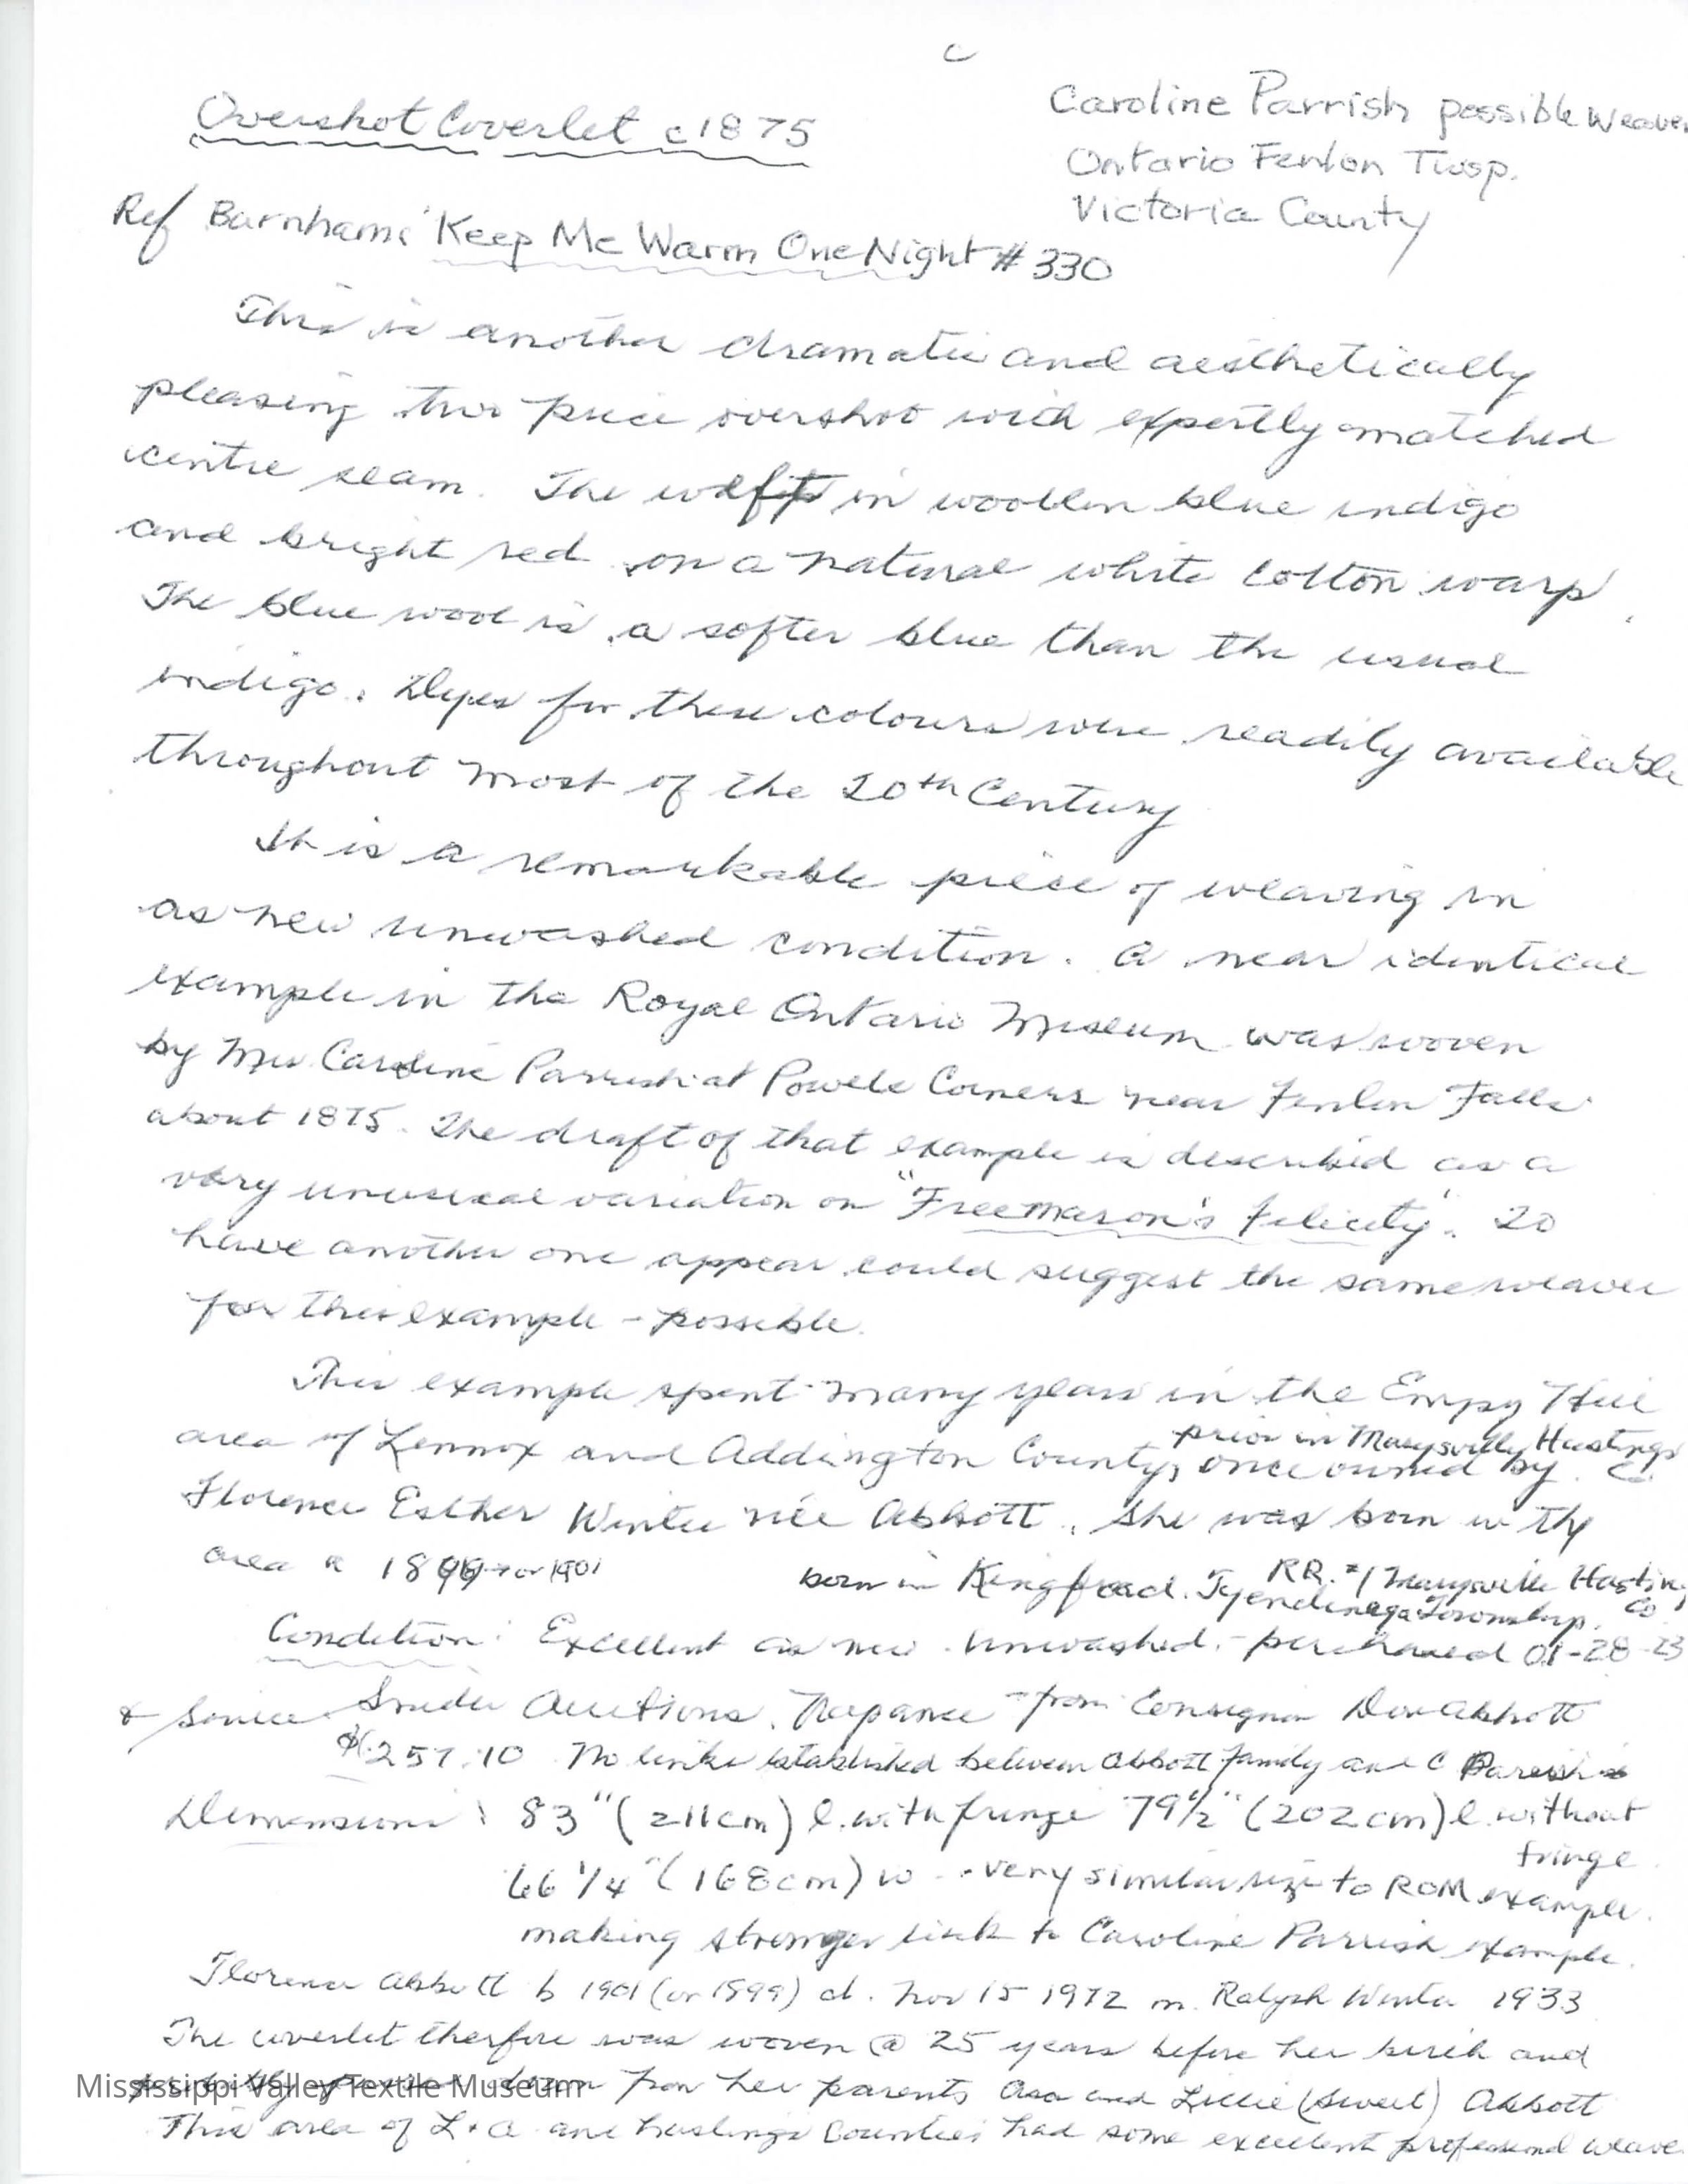 c
Overshot Coverlet c1875
Caroline Parrish possible Weaver
Ontario Fenlon Twsp.
Victoria County
Ref Burnhams' Keep Me Warm One Night # 330
This is another dramatic and aesthetically
pleasing two piece overshot with expertly matched
centre seam. The weft in woollen blue indigo
and bright red on a natural white cotton warp.
The blue wool is a softer blue than the usual
indigo. Dyes for these colours were readily available
throughout most of the 20th Century
It is a remarkable piece of weaving in
as new unwashed condition. A near identical
example in the Royal Ontario Museum was woven
by Mrs Caroline Parrish at Powels Corners near Fenlon Falls
about 1875. The draft of that example is described as a
vary unusual variation on "Freemason's Felicity". To
have another one appear could suggest the same weaver
for this example - possible.
This example spent many years in the Empy Hill
area of Lennox and Addington County, once owned by
prior in Marysville, Hastings Co.
Florence Esther Winter née Abbott. She was born in thy
area in 1899 or 1901
born in Kingsford. Tyendinaga Township. RR. #1 Marysville Hastings Co
Condition: Excellent as new. Unwashed. - purchased 01-28-23
& Source Snider Auctions, Napanee - from Consignor Don Abbott
$257.10 No links established between Abbott family and C Parrish
Dimensions: 83" (211cm) l. with fringe 79 1/2" (202cm) l. without
fringe
66 1/4" (168cm) w - very similar size to ROM example
making stronger link to Caroline Parrish example.
Florence Abbott b 1901 (or 1899) d. Nov 15 1972 m. Ralph Winter 1933
The coverlet therfore was woven @ 25 years before her birth and
down from her parents Asa and Lillie (Sweet) Abbott
This area of L+A and Hastings Counties had some excellent professional weave
Mississippi Valley Textile Museum